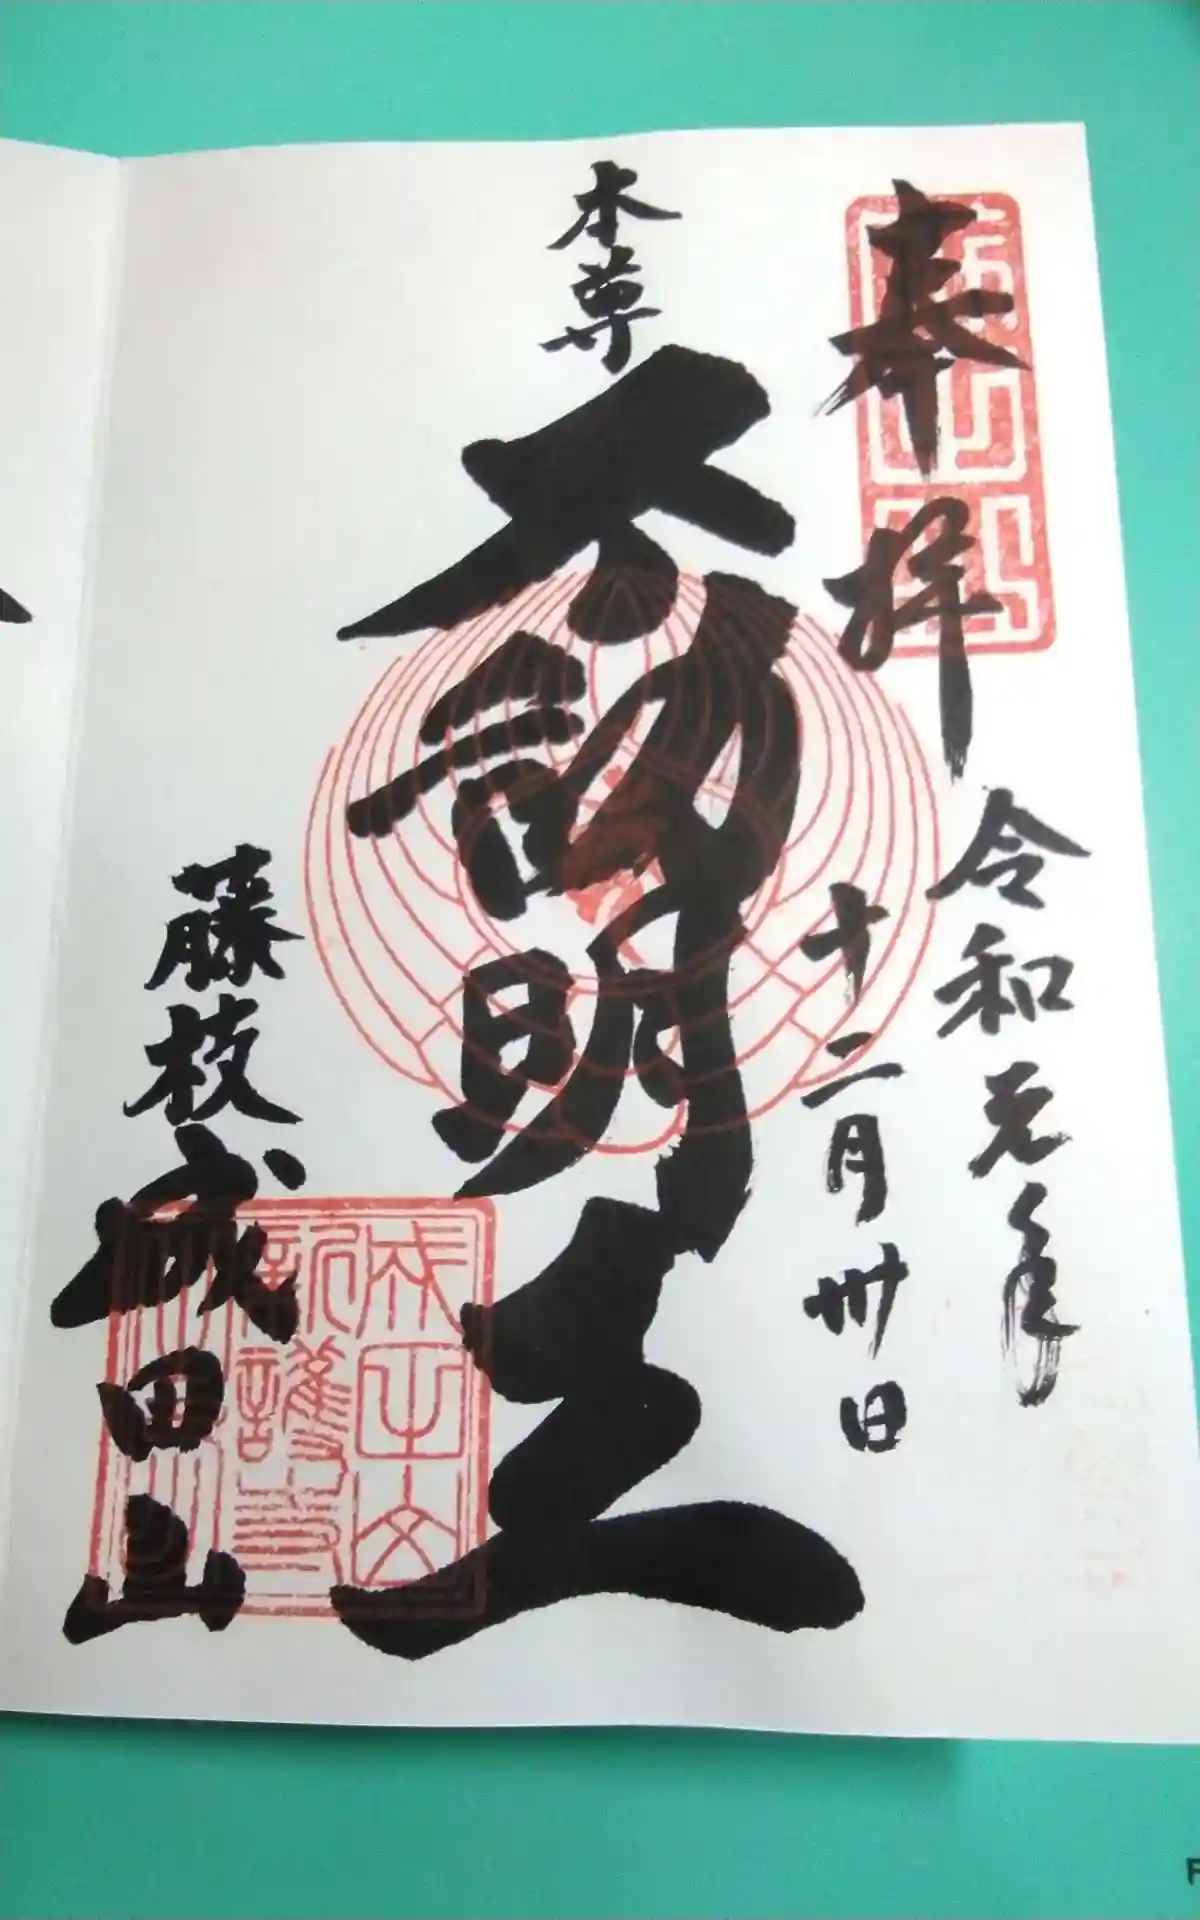 奉拝
令和元年
十二月卅日
本尊
不動明王
藤枝成田山